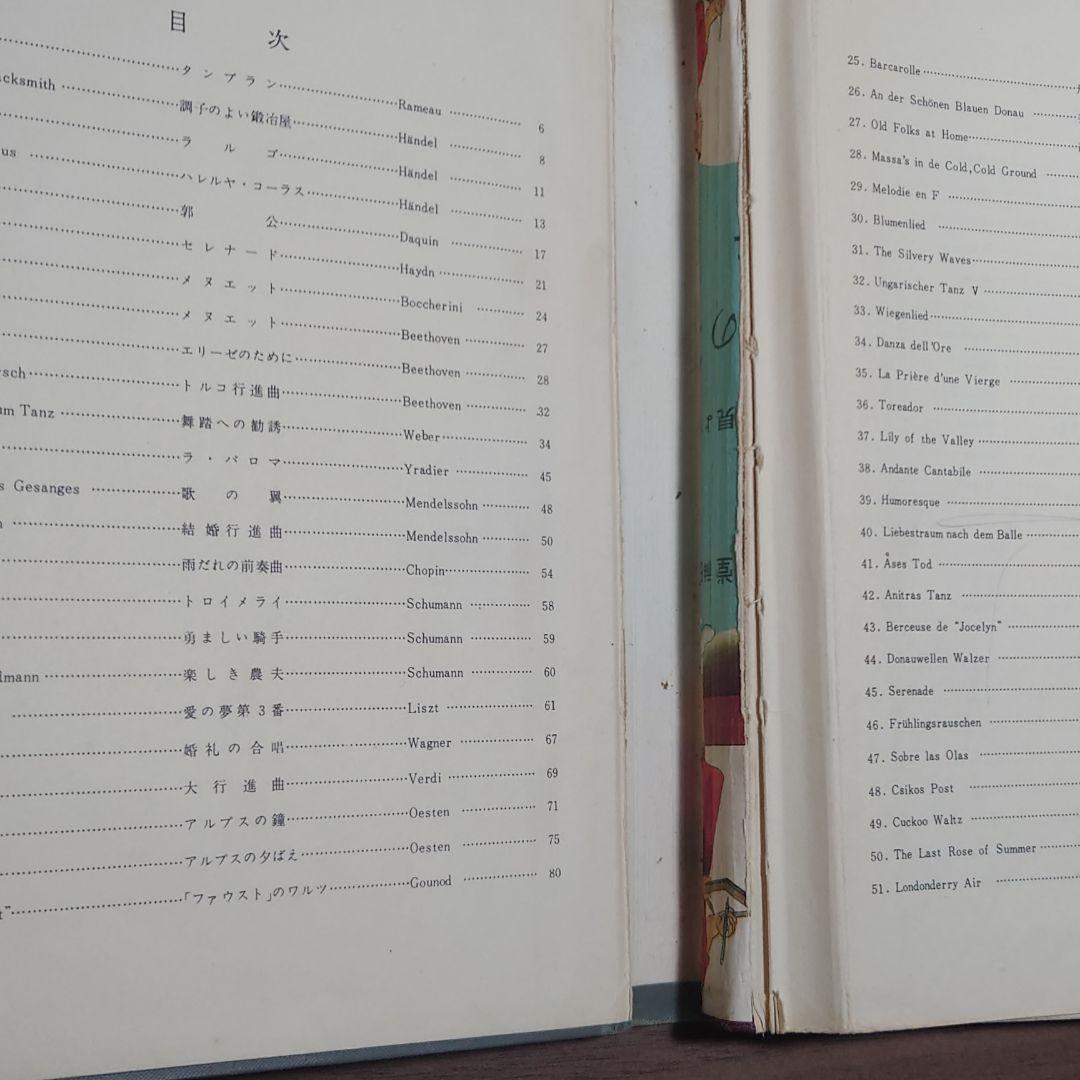 目次
タンブラン Rameau 6
acksmith 調子のよい鍛冶屋 Händel 8
ラルゴ Händel 11
us ハレルヤ・コーラス Händel 13
郭公 Daquin 17
セレナード Haydn 21
メヌエット Boccherini 24
メヌエット Beethoven 27
エリーゼのために Beethoven 28
rsch トルコ行進曲 Beethoven 32
um Tanz 舞踏への勧誘 Weber 34
ラ・パロマ Yradier 45
s Gesanges 歌の翼 Mendelssohn 48
結婚行進曲 Mendelssohn 50
雨だれの前奏曲 Chopin 54
トロイメライ Schumann 58
勇ましい騎手 Schumann 59
dmann 楽しき農夫 Schumann 60
愛の夢第3番 Liszt 61
婚礼の合唱 Wagner 67
大行進曲 Verdi 69
アルプスの鐘 Oesten 71
アルプスの夕ばえ Oesten 75
t" 「ファウスト」のワルツ Gounod 80
25. Barcarolle
26. An der Schönen Blauen Donau
27. Old Folks at Home
28. Massa's in de Cold, Cold Ground
29. Melodie en F
30. Blumenlied
31. The Silvery Waves
32. Ungarischer Tanz V
33. Wiegenlied
34. Danza dell'Ore
35. La Prière d'une Vierge
36. Toreador
37. Lily of the Valley
38. Andante Cantabile
39. Humoresque
40. Liebestraum nach dem Balle
41. Åses Tod
42. Anitras Tanz
43. Berceuse de "Jocelyn"
44. Donauwellen Walzer
45. Serenade
46. Frühlingsrauschen
47. Sobre las Olas
48. Csikos Post
49. Cuckoo Waltz
50. The Last Rose of Summer
51. Londonderry Air